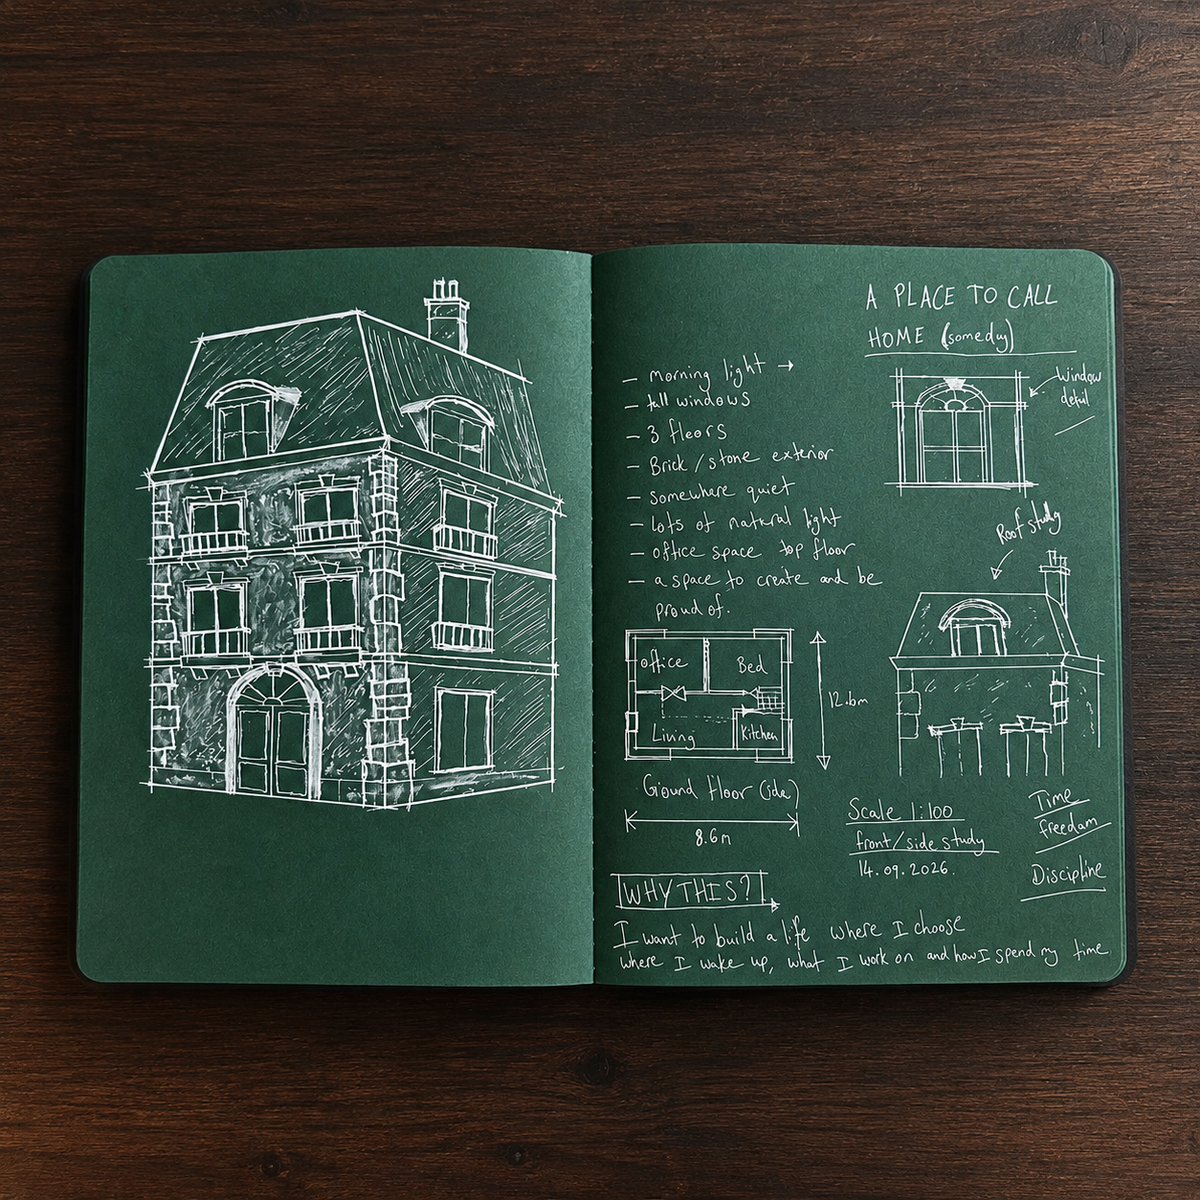 A PLACE TO CALL
HOME (someday)
– morning light →
– tall windows
– 3 floors
– Brick / stone exterior
– somewhere quiet
– lots of natural light
– office space top floor
– a space to create and be
proud of.
Window
detail
Roof study
office
Bed
Living
Kitchen
12.6m
Ground Floor
8.6m
Scale 1:100
front/side study
14.09.2026.
Time
freedom
Discipline
WHY THIS?
I want to build a life where I choose
where I wake up, what I work on and how I spend my time.